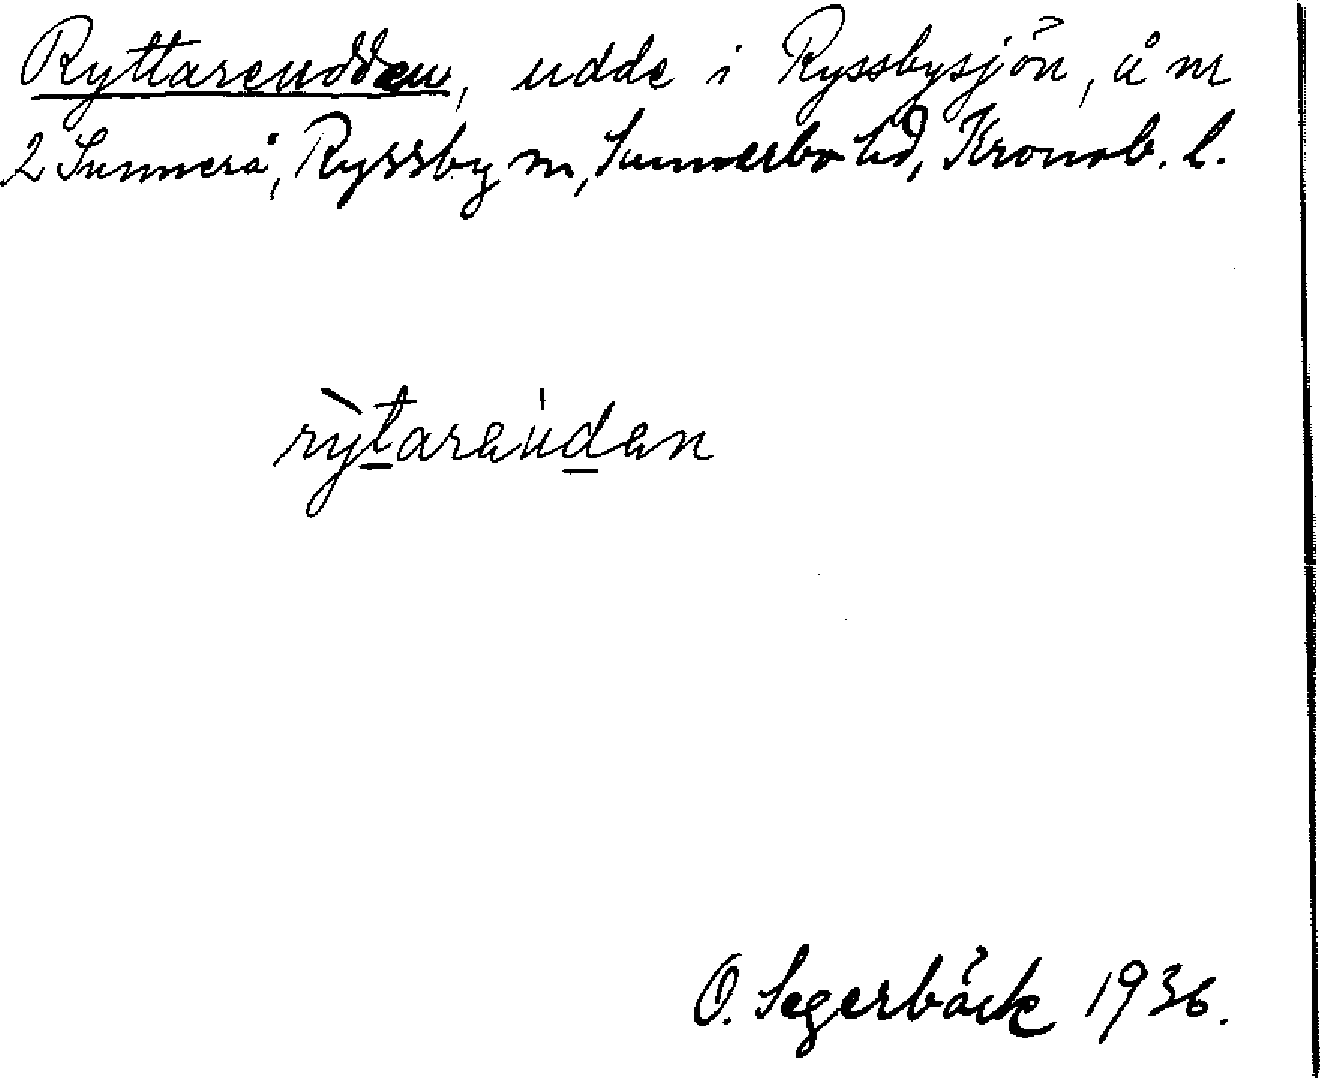 Ryttareudden, udde i Ryssbysjön, å nr
2 Sunnerå, Ryssby sn, Sunnerbo hd, Kronob. l.
rỳtareúden
O. Segerbäck 1936.